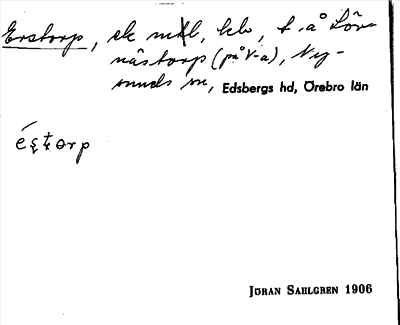 Erstorp, ek mtl, kb, t. å Löv-
nästorp (på V-a), Ny-
sunds sn, Edsbergs hd, Örebro län
éștorp
JÖRAN SAHLGREN 1906